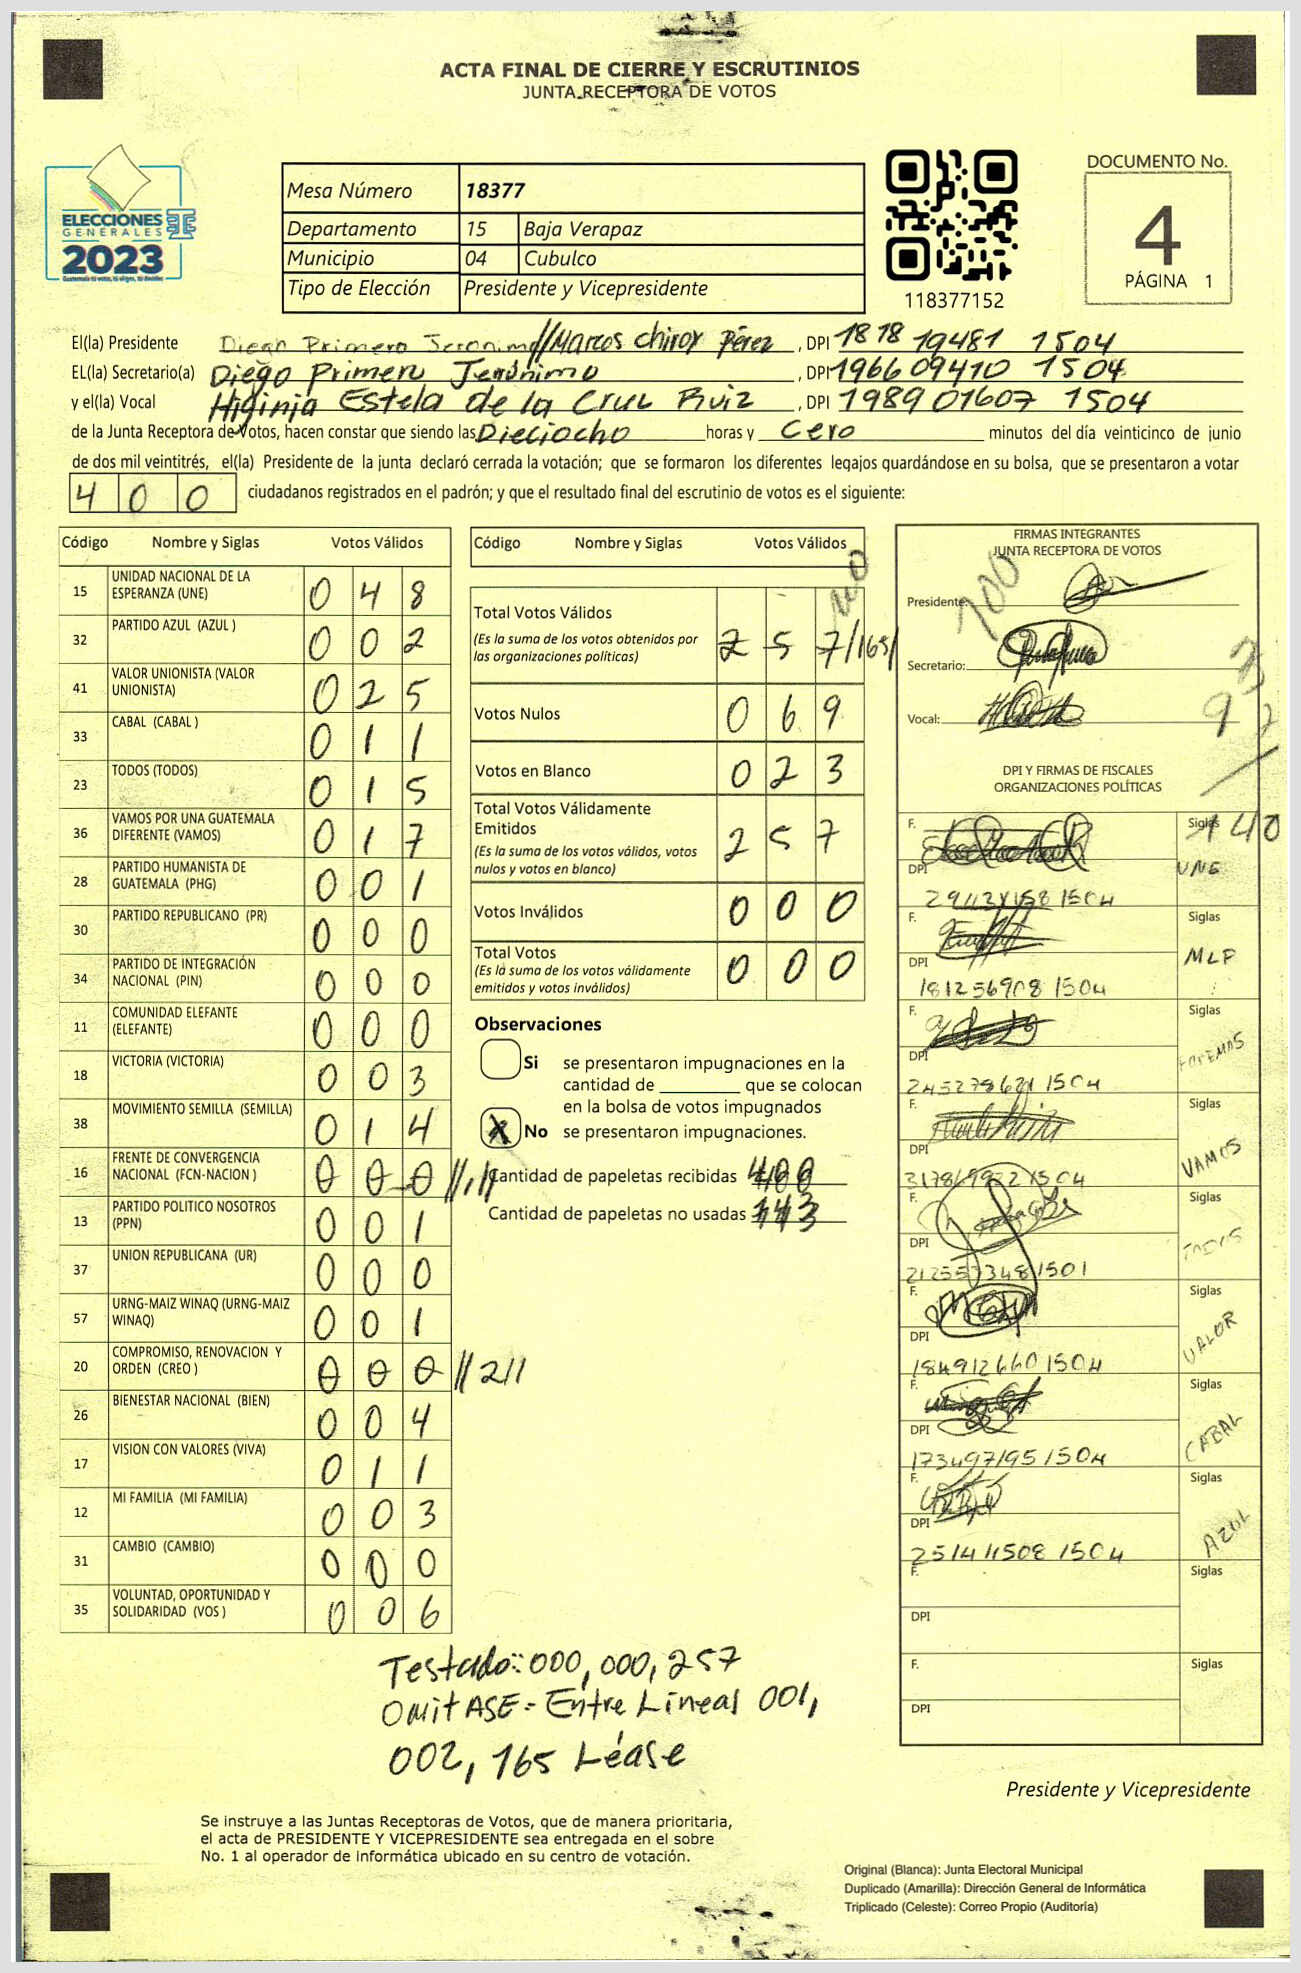 ACTA FINAL DE CIERRE Y ESCRUTINIOS
JUNTA RECEPTORA DE VOTOS
ELECCIONES
GENERALES
2023
Mesa Número 18377
Departamento 15 Baja Verapaz
Municipio 04 Cubulco
Tipo de Elección Presidente y Vicepresidente
118377152
DOCUMENTO No.
4
PÁGINA 1
El(la) Presidente Diego Primero Jeronimo//Marcos Chirox Pérez, DPI 1818 19481 1504
EL(la) Secretario(a) Diego Primero Jerónimo, DPI 1966 09410 1504
y el(la) Vocal Higinia Estela de la Cruz Ruiz, DPI 1989 01607 1504
de la Junta Receptora de Votos, hacen constar que siendo las Dieciocho horas y Cero minutos del día veinticinco de junio
de dos mil veintitrés, el(la) Presidente de la junta declaró cerrada la votación; que se formaron los diferentes legajos guardándose en su bolsa, que se presentaron a votar
400 ciudadanos registrados en el padrón; y que el resultado final del escrutinio de votos es el siguiente:
Código Nombre y Siglas Votos Válidos
15 UNIDAD NACIONAL DE LA ESPERANZA (UNE) 0 4 8
32 PARTIDO AZUL (AZUL ) 0 0 2
41 VALOR UNIONISTA (VALOR UNIONISTA) 0 2 5
33 CABAL (CABAL ) 0 1 1
23 TODOS (TODOS) 0 1 5
36 VAMOS POR UNA GUATEMALA DIFERENTE (VAMOS) 0 1 7
28 PARTIDO HUMANISTA DE GUATEMALA (PHG) 0 0 1
30 PARTIDO REPUBLICANO (PR) 0 0 0
34 PARTIDO DE INTEGRACIÓN NACIONAL (PIN) 0 0 0
11 COMUNIDAD ELEFANTE (ELEFANTE) 0 0 0
18 VICTORIA (VICTORIA) 0 0 3
38 MOVIMIENTO SEMILLA (SEMILLA) 0 1 4
16 FRENTE DE CONVERGENCIA NACIONAL (FCN-NACION ) 0 0 0 //1//
13 PARTIDO POLITICO NOSOTROS (PPN) 0 0 1
37 UNION REPUBLICANA (UR) 0 0 0
57 URNG-MAIZ WINAQ (URNG-MAIZ WINAQ) 0 0 1
20 COMPROMISO, RENOVACION Y ORDEN (CREO ) 0 0 0 //2//
26 BIENESTAR NACIONAL (BIEN) 0 0 4
17 VISION CON VALORES (VIVA) 0 1 1
12 MI FAMILIA (MI FAMILIA) 0 0 3
31 CAMBIO (CAMBIO) 0 0 0
35 VOLUNTAD, OPORTUNIDAD Y SOLIDARIDAD (VOS ) 0 0 6
Código Nombre y Siglas Votos Válidos
Total Votos Válidos 2 5 7/165/
(Es la suma de los votos obtenidos por
las organizaciones políticas)
Votos Nulos 0 6 9
Votos en Blanco 0 2 3
Total Votos Válidamente
Emitidos 2 5 7
(Es la suma de los votos válidos, votos
nulos y votos en blanco)
Votos Inválidos 0 0 0
Total Votos 0 0 0
(Es la suma de los votos válidamente
emitidos y votos inválidos)
Observaciones
Si se presentaron impugnaciones en la
cantidad de ________ que se colocan
en la bolsa de votos impugnados
X No se presentaron impugnaciones.
Cantidad de papeletas recibidas 400
Cantidad de papeletas no usadas 143
FIRMAS INTEGRANTES
JUNTA RECEPTORA DE VOTOS
100
Presidente:
Secretario:
Vocal:
DPI Y FIRMAS DE FISCALES
ORGANIZACIONES POLÍTICAS
140
F. Siglas
DPI UNE
F. Siglas
DPI MLP
181256908 1504
F. Siglas
DPI
245278621 1504
F. Siglas
DPI VAMOS
F. Siglas
DPI TODOS
212557348 1501
F. Siglas
DPI VALOR
184912660 1504
F. Siglas
DPI CABAL
173497195 1504
F. Siglas
DPI AZUL
251411508 1504
F. Siglas
DPI
F. Siglas
DPI
Testado: 000, 000, 257
OmitASE - Entre Lineas 001,
002, 165 Léase
Presidente y Vicepresidente
Se instruye a las Juntas Receptoras de Votos, que de manera prioritaria,
el acta de PRESIDENTE Y VICEPRESIDENTE sea entregada en el sobre
No. 1 al operador de informática ubicado en su centro de votación.
Original (Blanca): Junta Electoral Municipal
Duplicado (Amarilla): Dirección General de Informática
Triplicado (Celeste): Correo Propio (Auditoría)